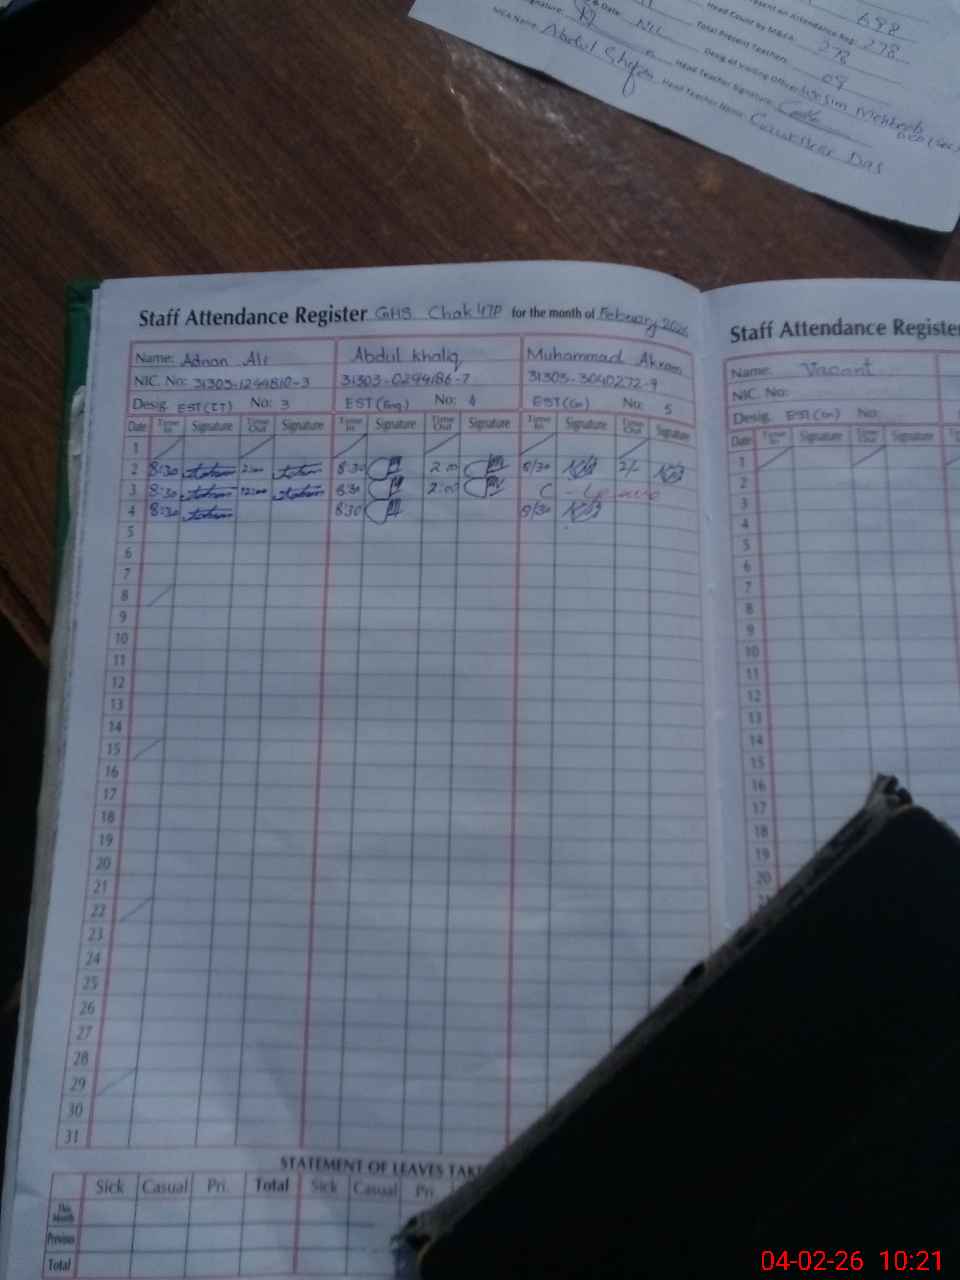 esent on Attendance Reg: 698
Head Count by M&CA: 278
Total Present Teachers: 278
Desig of Visiting Officer: 09
Signature: & Date: Nil
MCA Name: Abdul
Head Teacher Signature:
Head Teacher Name:
Wasim Mehboob
Das
Staff Attendance Register GHS Chak 47P for the month of February 2026
Name: Adnan Ali Abdul khaliq Muhammad Akram
NIC. No: 31303-1244810-3 31303-0294186-7 31303-3040272-9
Desig. EST(IT) No: 3 EST(Eng) No: 4 EST(Gn) No: 5
Date Time In Signature Time Out Signature Time In Signature Time Out Signature Time In Signature Time Out Signature
1
2 8:30 2:00 8:30 2:00 8/30 2/-
3 8:30 8:30 2:00 C - Leave
4 8:30 8:30 8/30
5
6
7
8
9
10
11
12
13
14
15
16
17
18
19
20
21
22
23
24
25
26
27
28
29
30
31
STATEMENT OF LEAVES TAKE
Sick Casual Pri. Total Sick Casual Pri.
This Month
Previous
Total
Staff Attendance Register
Name: Vacant
NIC. No:
Desig. EST(Gn) No:
Date Time In Signature Time Out Signature
1
2
3
4
5
6
7
8
9
10
11
12
13
14
15
16
17
18
19
20
04-02-26 10:21